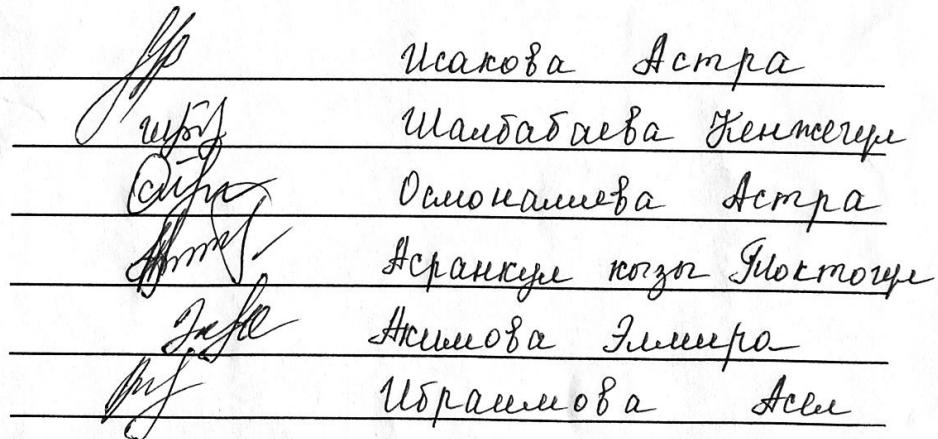 Исакова Астра
Шалбабаева Кенжегул
Осмоналиева Астра
Асранкул кызы Токтогул
Акимова Элмира
Ибраимова Асел